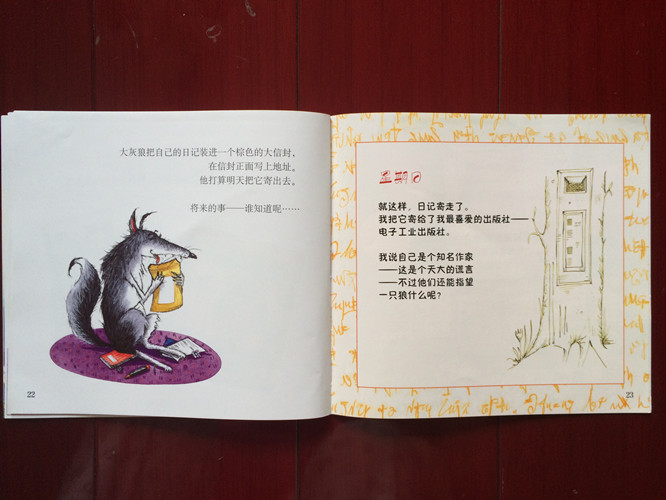 大灰狼把自己的日记装进一个棕色的大信封，
在信封正面写上地址。
他打算明天把它寄出去。
将来的事——谁知道呢……
22
星期日
就这样，日记寄走了。
我把它寄给了我最喜爱的出版社——
电子工业出版社。
我说自己是个知名作家
——这是个天大的谎言
——不过他们还能指望
一只狼什么呢？
23